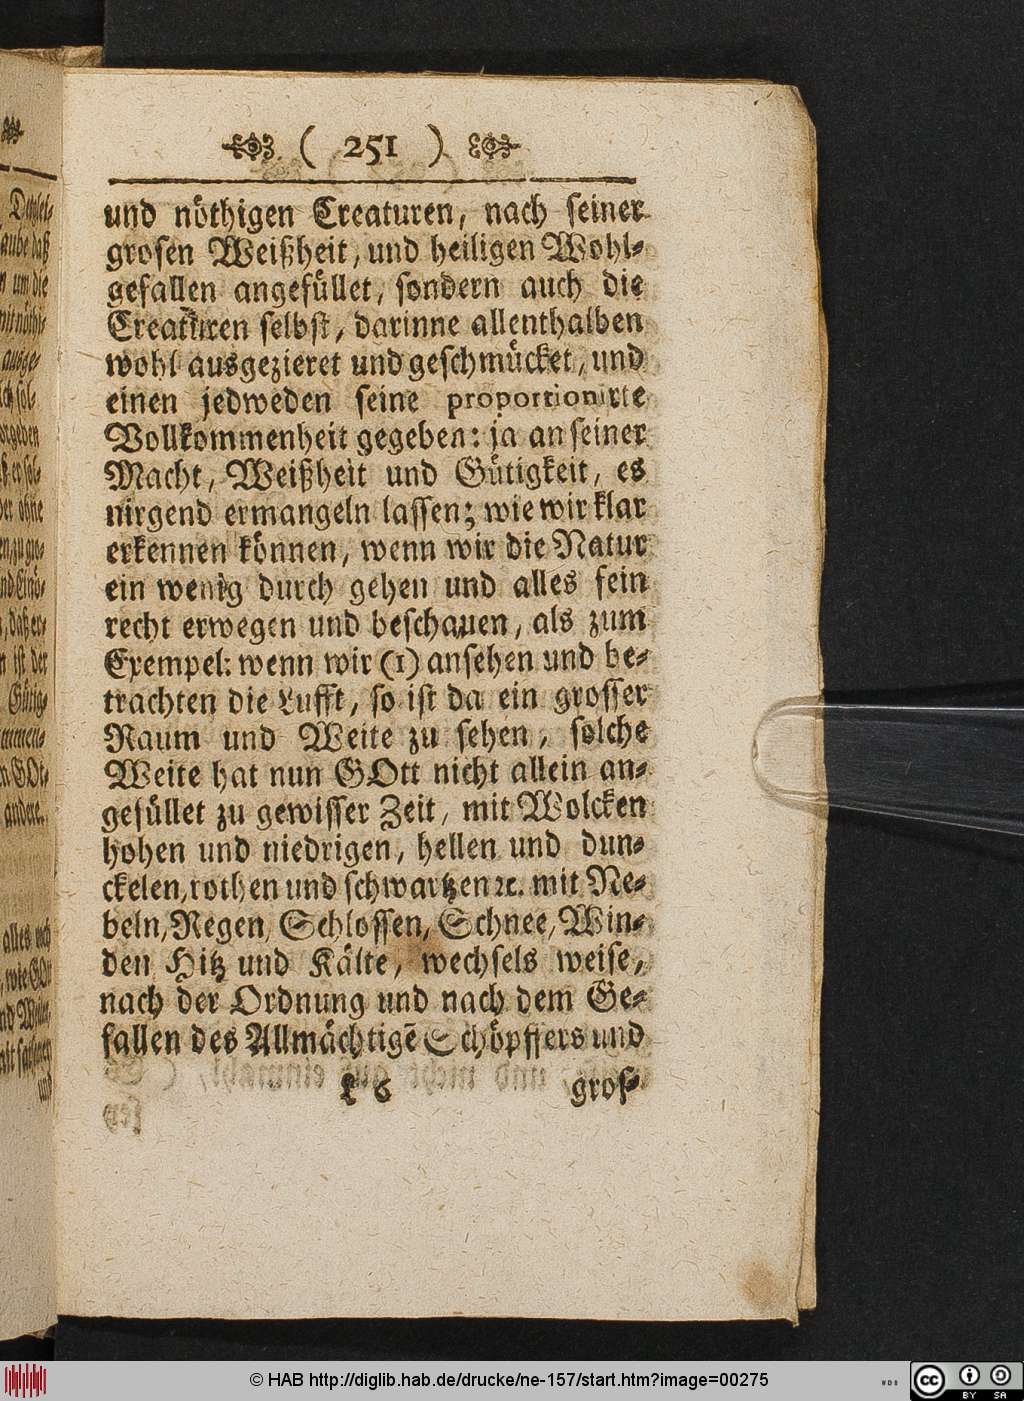 ( 251 )
und nöthigen Creaturen, nach seiner
grosen Weißheit, und heiligen Wohl-
gefallen angefüllet, sondern auch die
Creaturen selbst, darinne allenthalben
wohl ausgezieret und geschmücket, und
einen jedweden seine proportionirte
Vollkommenheit gegeben: ja an seiner
Macht, Weißheit und Gütigkeit, es
nirgend ermangeln lassen; wie wir klar
erkennen können, wenn wir die Natur
ein wenig durch gehen und alles fein
recht erwegen und beschauen, als zum
Exempel: wenn wir (1) ansehen und be-
trachten die Lufft, so ist da ein grosser
Raum und Weite zu sehen, solche
Weite hat nun GOtt nicht allein an-
gefüllet zu gewisser Zeit, mit Wolcken
hohen und niedrigen, hellen und dun-
ckelen, rothen und schwartzen ꝛc. mit Ne-
beln, Regen, Schlossen, Schnee, Win-
den Hitz und Kälte, wechsels weise,
nach der Ordnung und nach dem Ge-
fallen des Allmächtigē Schöpffers und
L 6 gros-
© HAB http://diglib.hab.de/drucke/ne-157/start.htm?image=00275
WDB
cc BY SA